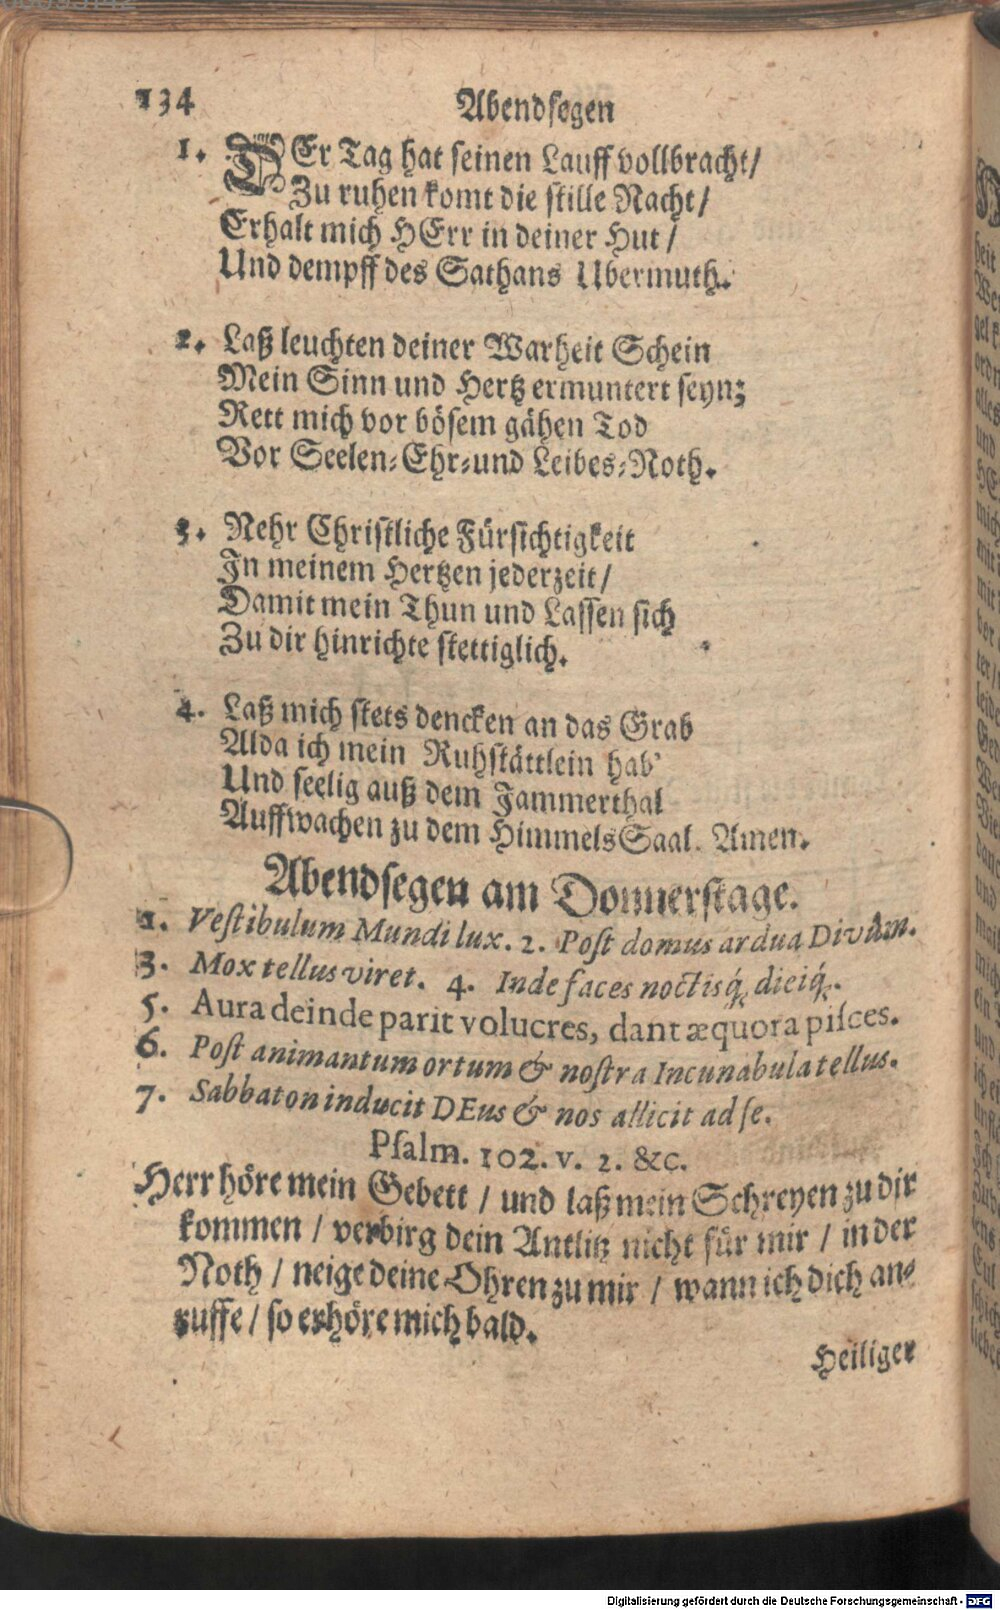 134 Abendsegen
1. DEr Tag hat seinen Lauff vollbracht/
Zu ruhen komt die stille Nacht/
Erhalt mich HErr in deiner Hut/
Und dempff des Sathans Ubermuth.
2. Laß leuchten deiner Warheit Schein
Mein Sinn und Hertz ermuntert seyn;
Rett mich vor bösem gähen Tod
Vor Seelen-Ehr-und Leibes-Noth.
3. Nehr Christliche Fürsichtigkeit
In meinem Hertzen jederzeit/
Damit mein Thun und Lassen sich
Zu dir hinrichte stettiglich.
4. Laß mich stets dencken an das Grab
Alda ich mein Ruhstättlein hab'
Und seelig auß dem Jammerthal
Auffwachen zu dem HimmelsSaal. Amen.
Abendsegen am Donnerstage.
1. Veſtibulum Mundi lux. 2. Poſt domus ardua Divûm.
3. Mox tellus viret. 4. Inde faces noctisq́; dieiq́;.
5. Aura deinde parit volucres, dant æquora piſces.
6. Poſt animantum ortum & noſtra Incunabula tellus.
7. Sabbaton inducit DEus & nos allicit ad ſe.
Pſalm. 102. v. 2. &c.
Herr höre mein Gebett / und laß mein Schreyen zu dir
kommen / verbirg dein Antlitz nicht für mir / in der
Noth / neige deine Ohren zu mir / wann ich dich an-
ruffe / so erhöre mich bald.
Heiliger
Digitalisierung gefördert durch die Deutsche Forschungsgemeinschaft - DFG